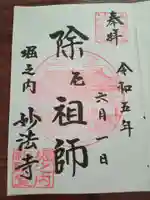 奉拝
令和五年
六月一日
除厄
祖師
堀之内
妙法寺